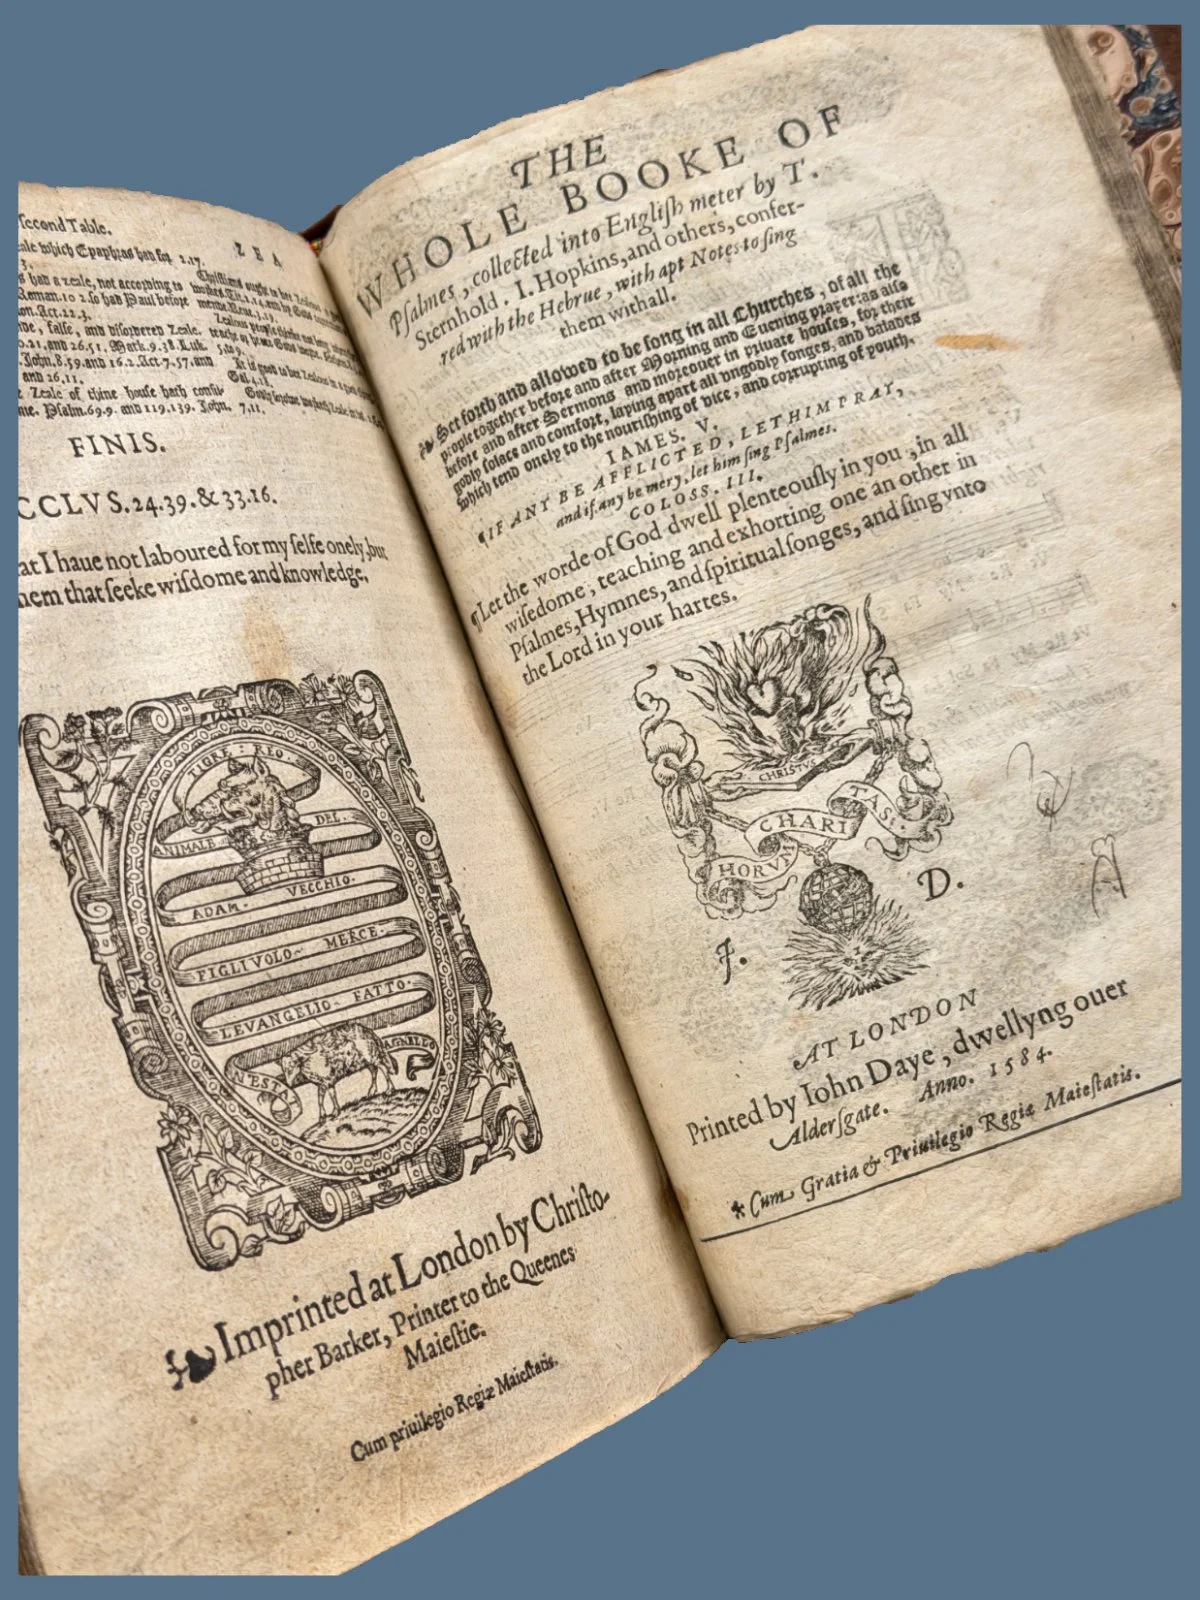 Second Table.
Z E A
zale which Epaphras had for 2.17.
s had a zeale, not according to
Roman.10 2. so had Paul before
on. Act.22.3.
de, false, and disordered Zeale.
0.21, and 26.51. Mark.9.38. Luk.
John.8.59. and 16.2. Act.7.57. and
and 26.11.
e Zeale of thine house hath
ne. Psalm.69.9. and 119.139. John.
Gal.4.18.
7,11.
FINIS.
CCLVS.24.39.&33.16.
at I haue not laboured for my selfe onely, but
hem that seeke wisdome and knowledge.
TIGRE: REO.
ANIMALE DEL.
ADAM. VECCHIO.
FIGLIVOLO MERCE.
LEVANGELIO FATTO.
N'ESTA AGNELLO
Imprinted at London by Christo-
pher Barker, Printer to the Queenes
Maiestie.
Cum priuilegio Regiæ Maiestatis.
THE
WHOLE BOOKE OF
Psalmes, collected into English meter by T.
Sternhold. I. Hopkins, and others, confer-
red with the Hebrue, with apt Notes to sing
them withall.
Set forth and allowed to be song in all Churches, of all the
people together before and after Morning and Euening prayer: as also
before and after Sermons and moreouer in priuate houses, for their
godly solace and comfort, laying apart all vngodly songes, and balades
which tend onely to the nourishing of vice, and corrupting of youth.
IAMES. V.
¶IF ANY BE AFFLICTED, LET HIM PRAY,
and if any be mery, let him sing Psalmes.
COLOSS. III.
¶Let the worde of God dwell plenteously in you, in all
wisedome, teaching and exhorting one an other in
Psalmes, Hymnes, and spirituall songes, and sing vnto
the Lord in your hartes.
CHRISTVS
HORVM CHARI TAS.
I. D.
AT LONDON
Printed by Iohn Daye, dwellyng ouer
Aldersgate. Anno. 1584.
Cum Gratia & Priuilegio Regiæ Maiestatis.